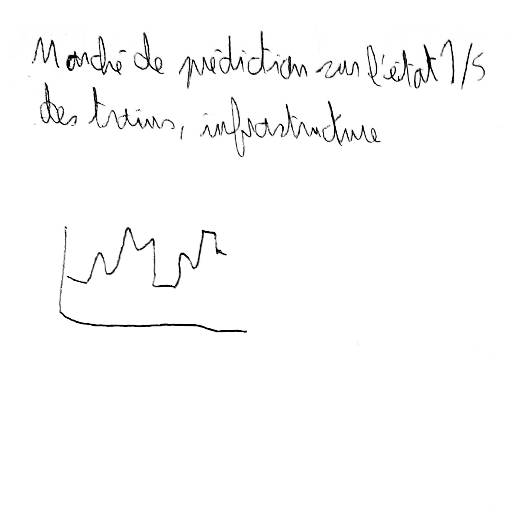 Marché de prédiction sur l'état 1/5
des trains, infrastructure